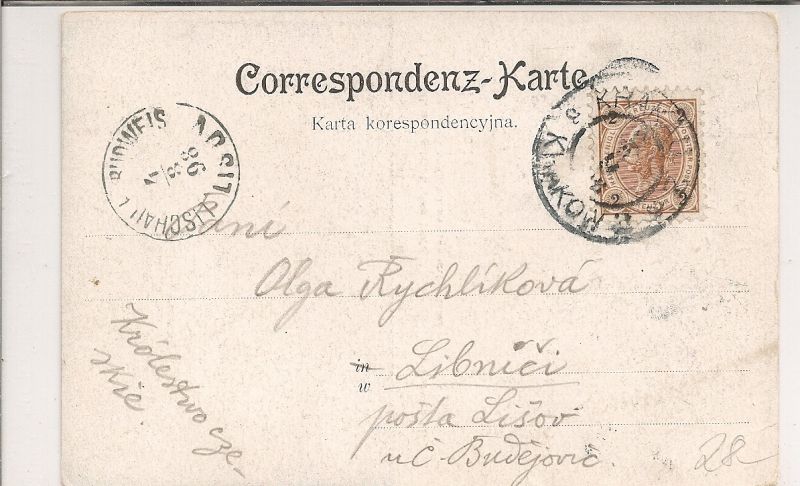 Correspondenz-Karte
Karta korespondencyjna.
BUDWEIS LISCHAU
KRAKÓW
Paní
Olga Rychlíková
in
w Libníči
pošta Lišov
u Č. Budějovic.
Królestwo cze-
skie
28